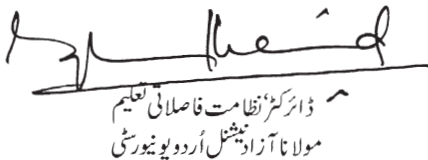 ڈائرکٹر، نظامت فاصلاتی تعلیم
مولانا آزاد نیشنل اُردو یونیورسٹی